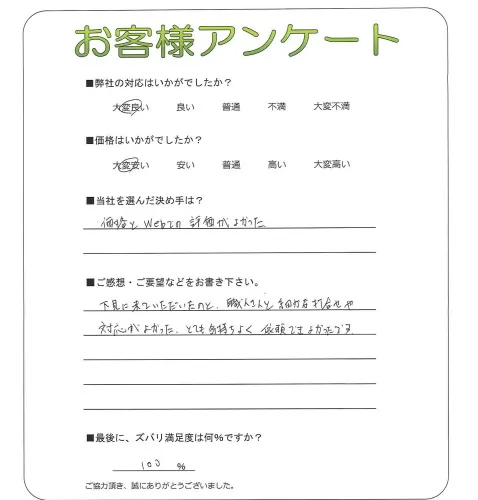 お客様アンケート
■弊社の対応はいかがでしたか？
大変良い 良い 普通 不満 大変不満
■価格はいかがでしたか？
大変安い 安い 普通 高い 大変高い
■当社を選んだ決め手は？
価格と Webでの 評価がよかった
■ご感想・ご要望などをお書き下さい。
下見に来ていただいたのと、職人さんと 細かな打合せや
対応がよかった、とても気持ちよく 依頼できよかったです
■最後に、ズバリ満足度は何％ですか？
100 %
ご協力頂き、誠にありがとうございました。